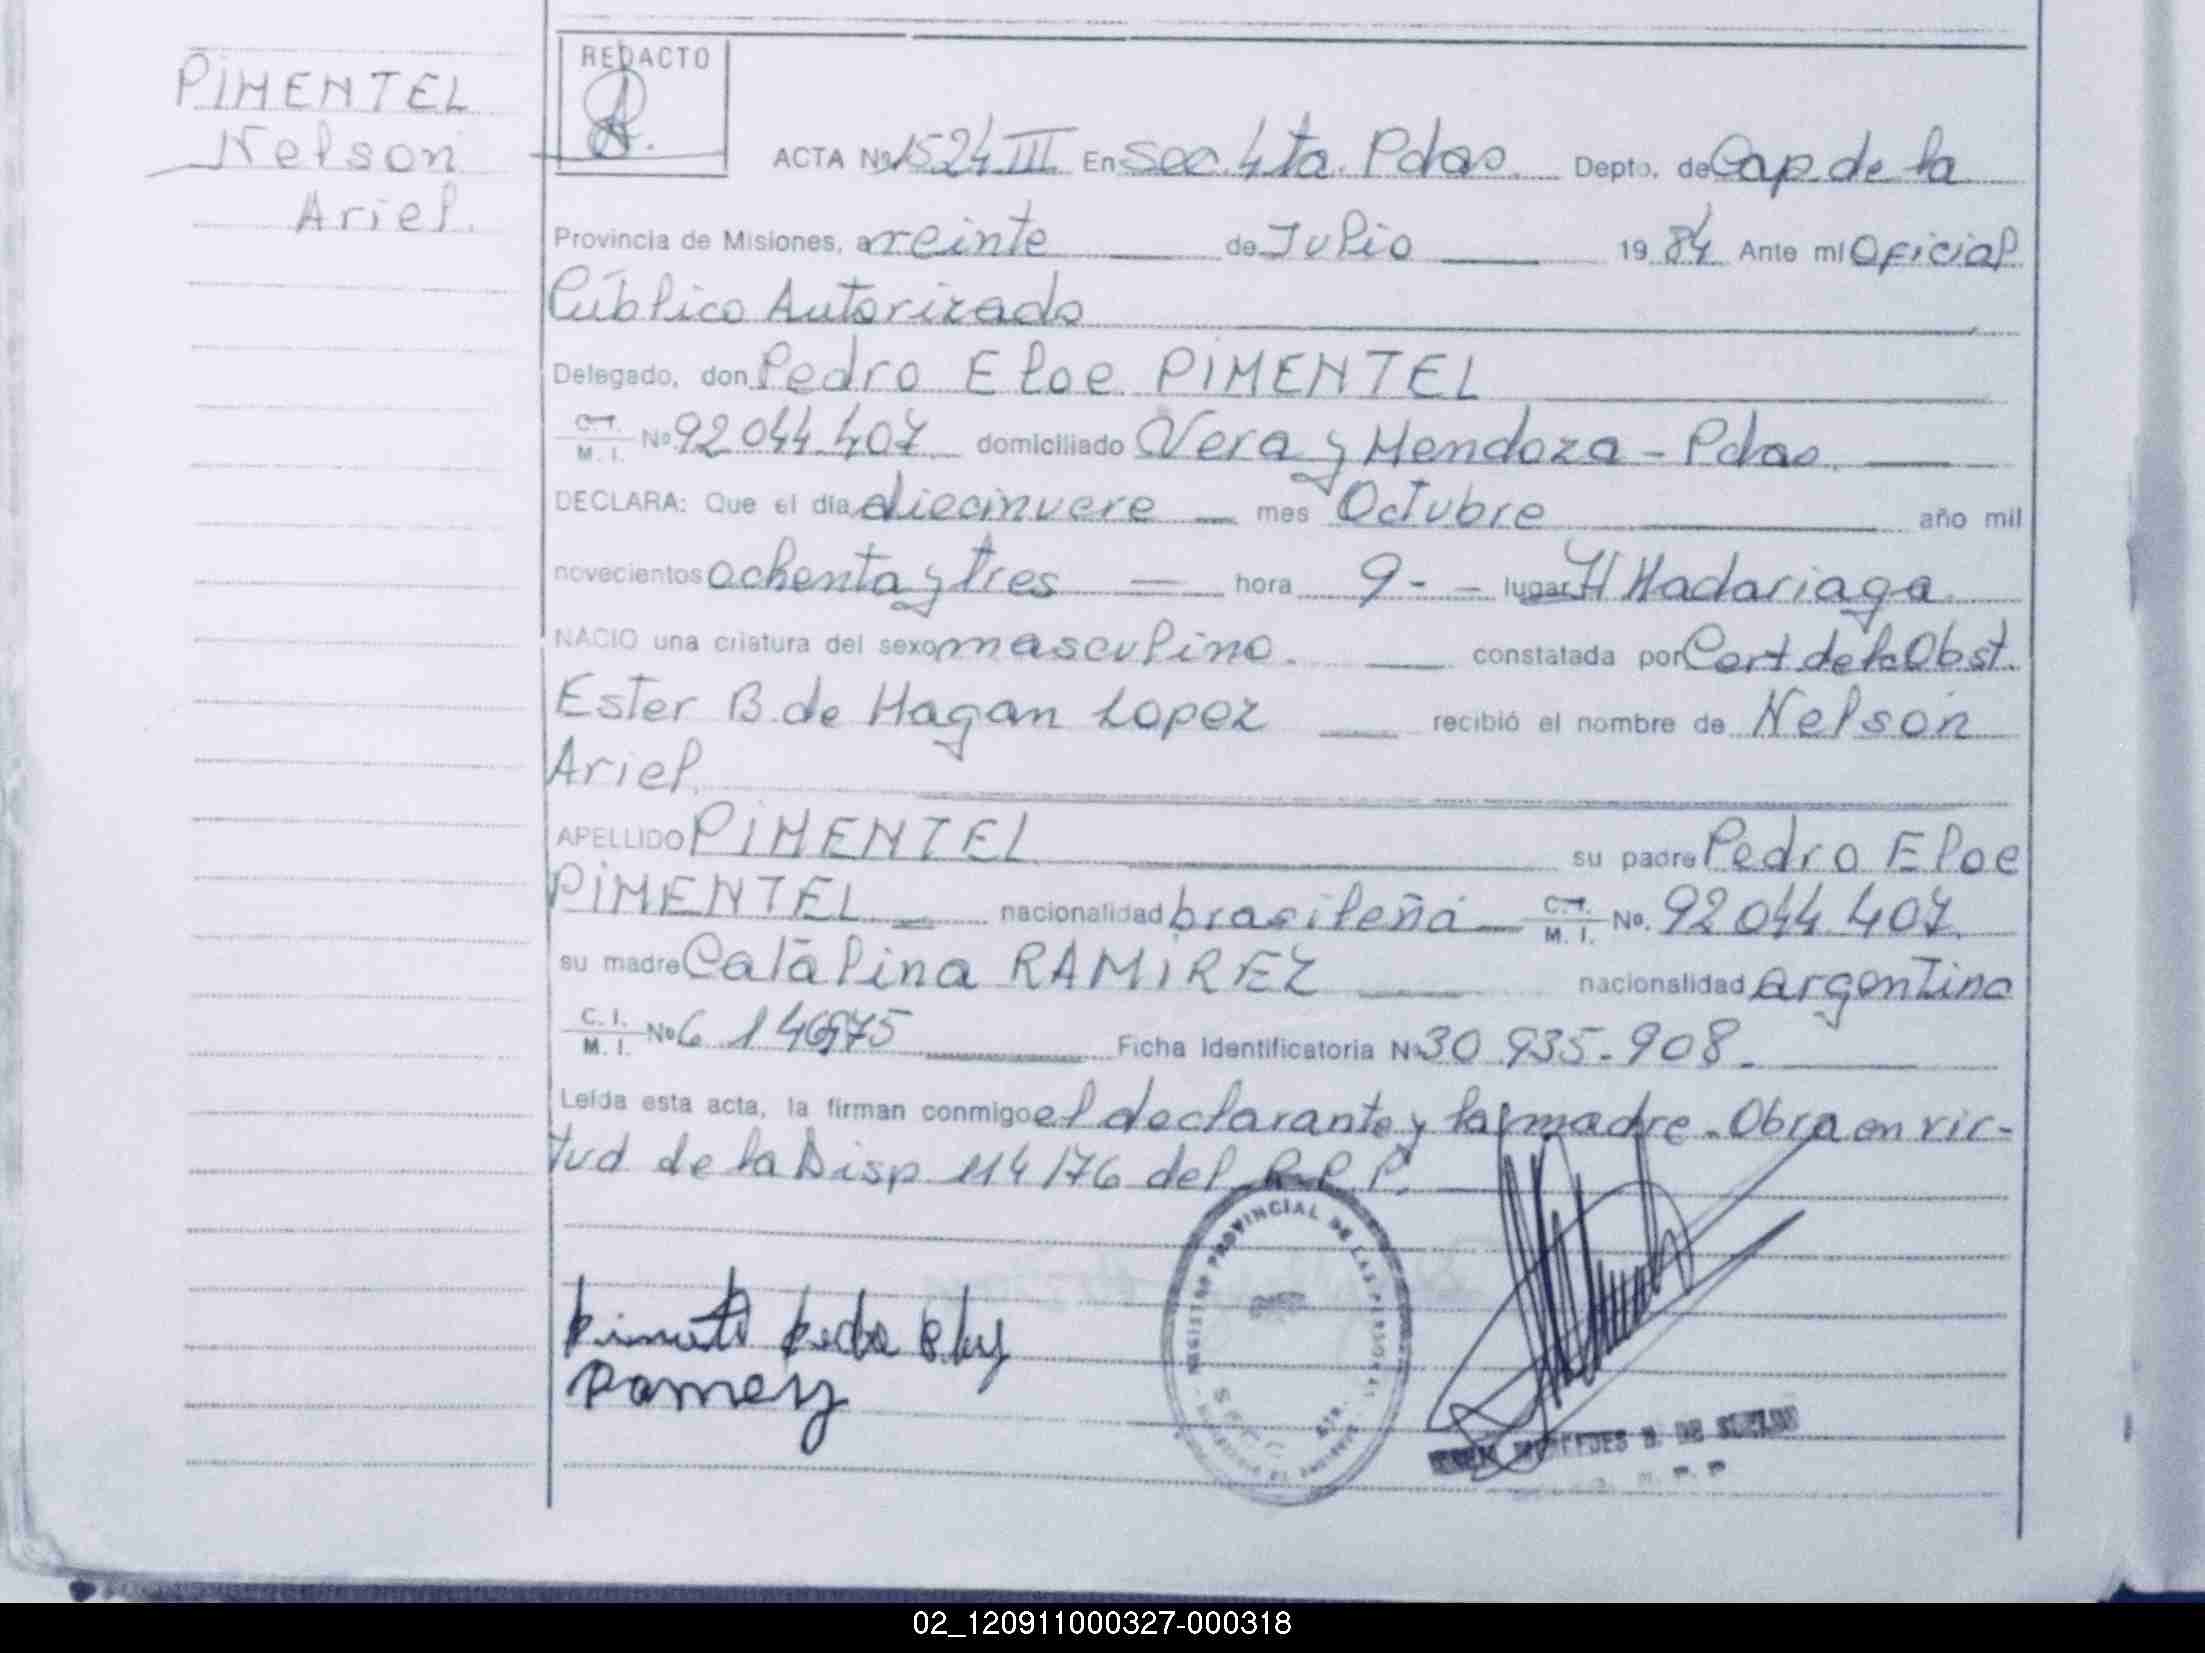 PIMENTEL
Nelson
Ariel.
REDACTO
ACTA Nº 1524 III En Sec. 4ta. Pdas. Depto. de Cap. de la
Provincia de Misiones, a veinte de Julio 1984 Ante mí Oficial
Público Autorizado
Delegado, don Pedro Eloe PIMENTEL
C.I. M. I. Nº 92 044 407 domiciliado Vera y Mendoza - Pdas.
DECLARA: Que el día diecinueve mes Octubre año mil
novecientos ochenta y tres hora 9- lugar H Madariaga
NACIO una criatura del sexo masculino. constatada por Cert de la Obst.
Ester B. de Hagan Lopez recibió el nombre de Nelson
Ariel
APELLIDO PIMENTEL su padre Pedro Eloe
PIMENTEL nacionalidad brasileña C.I. M. I. Nº. 92 044 407
su madre Catalina RAMIREZ nacionalidad argentina
C. I. M. I. Nº 6 Ficha Identificatoria Nº 30 935.908.
Leída esta acta, la firman conmigo el declarante y la madre. Obra en vir-
tud de la Disp 114/76 del R.P.P.
REGISTRO PROVINCIAL DE LAS PERSONAS
MERCEDES B. DE SUELDO
02_120911000327-000318